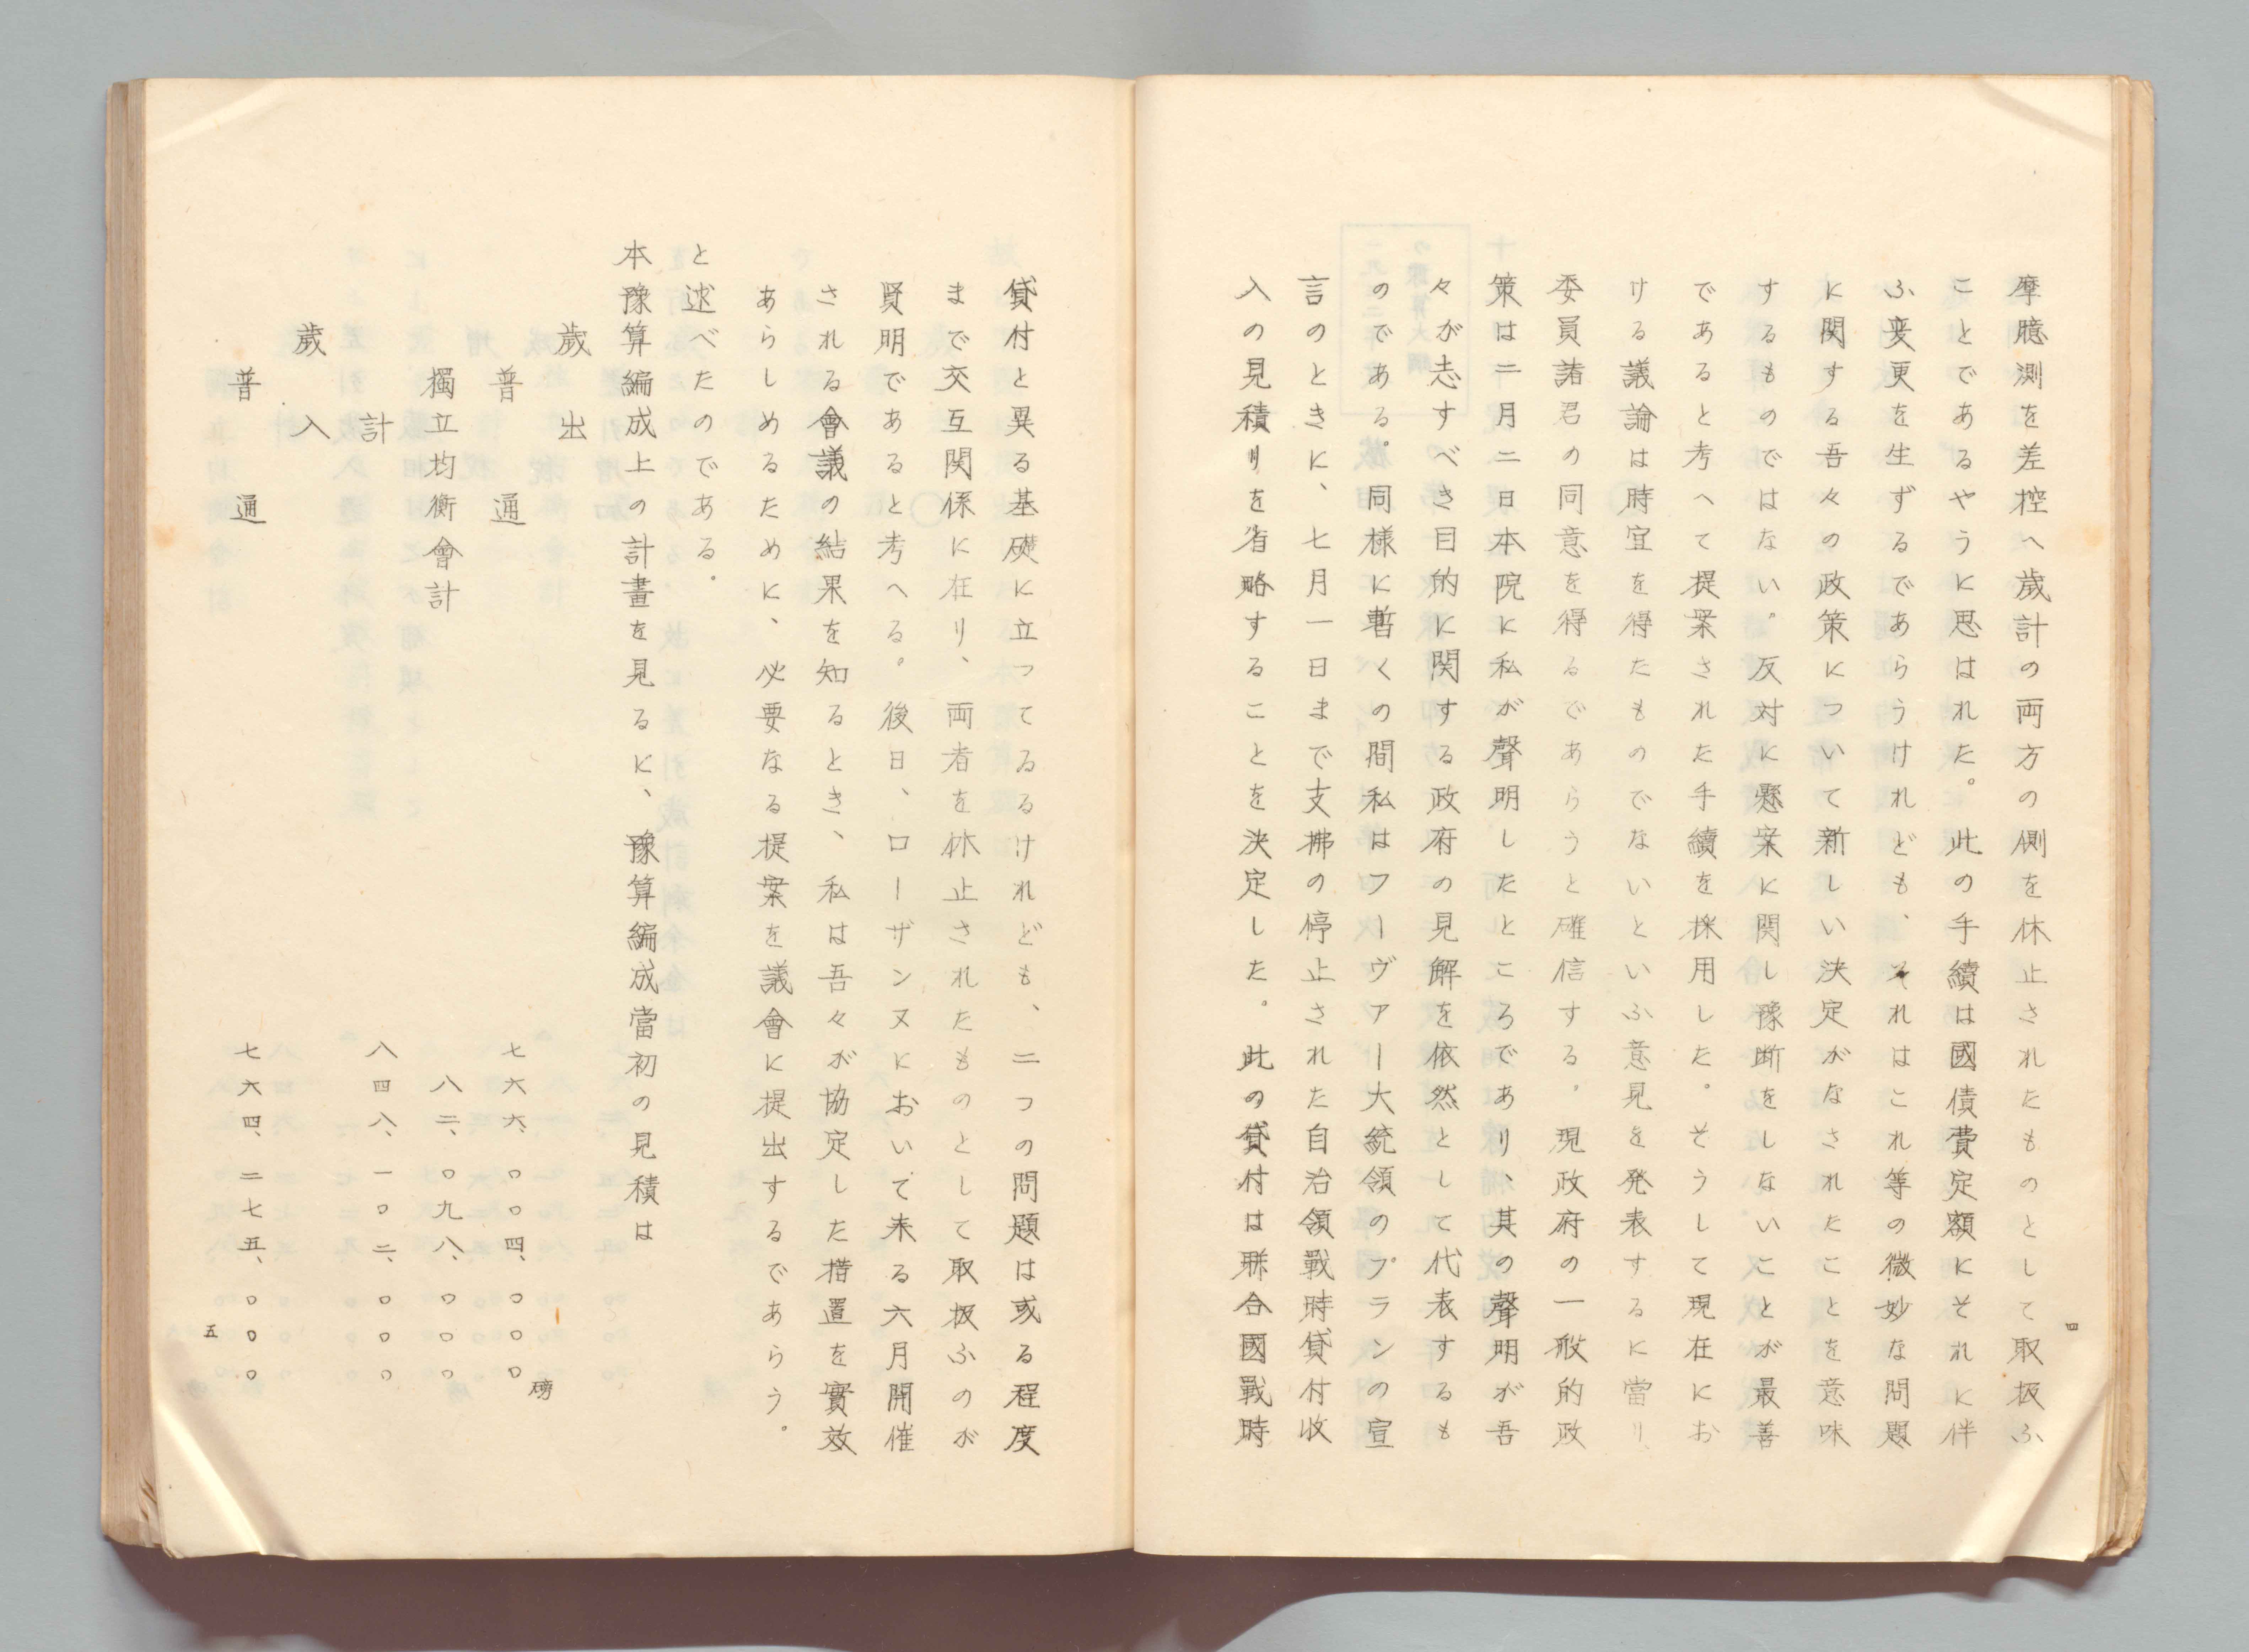 摩臆測を差控へ歳計の両方の側を休止されたものとして取扱ふ
ことであるやうに思はれた。此の手續は國債費定額にそれに伴
ふ変更を生ずるであらうけれども、それはこれ等の微妙な問題
に関する吾々の政策について新しい決定がなされたことを意味
するものではない。反対に懸案に関し豫断をしないことが最善
であると考へて提案された手續を採用した。そうして現在にお
ける議論は時宜を得たものでないといふ意見を発表するに當り、
委員諸君の同意を得るであらうと確信する。現政府の一般的政
策は二月二日本院に私が聲明したところであり、其の聲明が吾
々が志すべき目的に関する政府の見解を依然として代表するも
のである。同様に暫くの間私はフーヴァー大統領のプランの宣
言のときに、七月一日まで支拂の停止された自治領戰時貸付收
入の見積りを省略することを決定した。此の貸付は聯合國戰時
四
貸付と異る基礎に立つてゐるけれども、二つの問題は或る程度
まで交互関係に在り、両者を休止されたものとして取扱ふのが
賢明であると考へる。後日、ローザンヌにおいて来る六月開催
される會議の結果を知るとき、私は吾々が協定した措置を實效
あらしめるために、必要なる提案を議會に提出するであらう。
と述べたのである。
本豫算編成上の計畫を見るに、豫算編成當初の見積は
歳出
磅
普通 七六六、〇〇四、〇〇〇
獨立均衡會計 八二、〇九八、〇〇〇
計 八四八、一〇二、〇〇〇
歳入
普通 七六四、二七五、〇〇〇
五